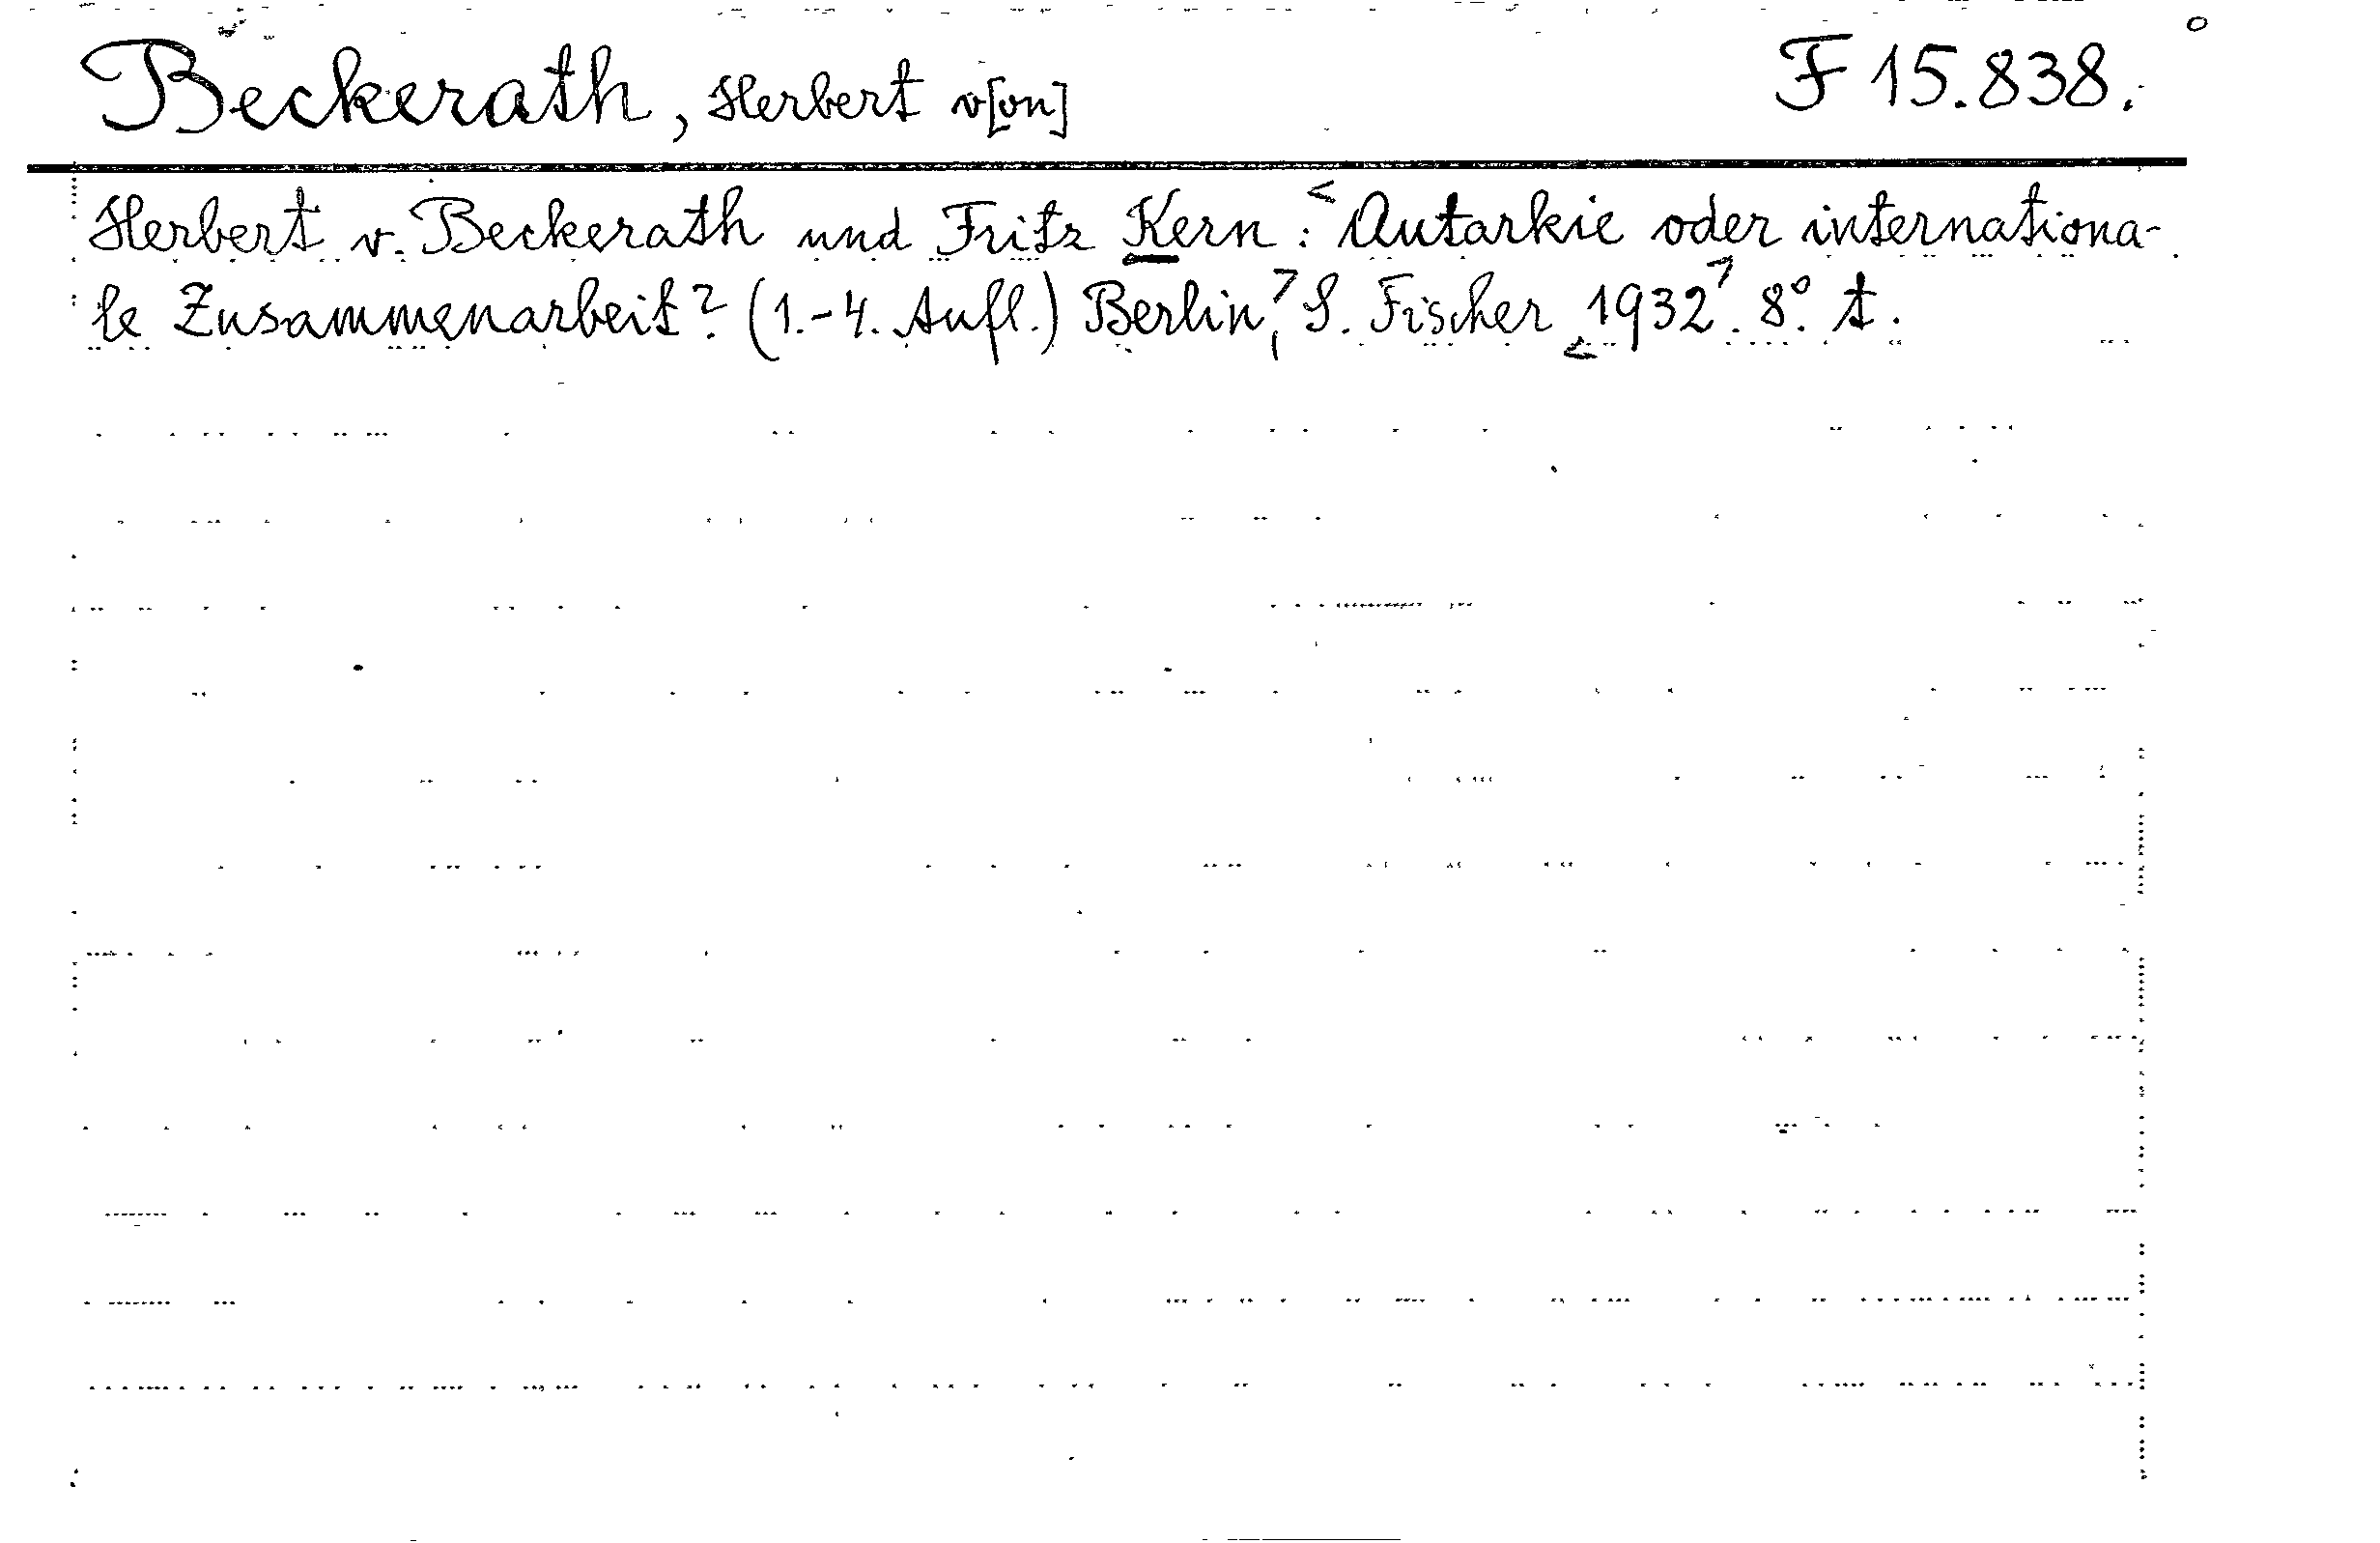 Beckerath, Herbert v[on] F 15.838.
Herbert v. Beckerath und Fritz Kern: Autarkie oder internationa-
le Zusammenarbeit? (1.-4. Aufl.) Berlin, S. Fischer 1932. 8°. t.